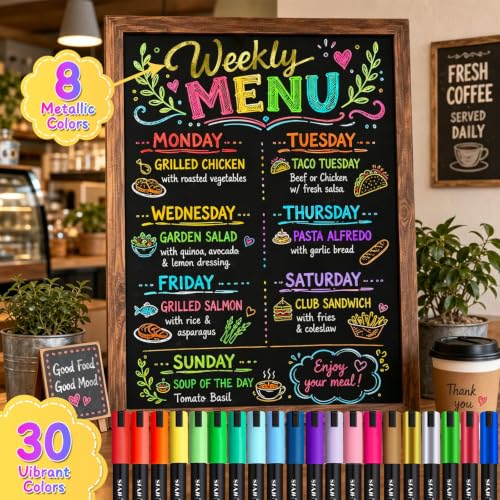 8
Metallic
Colors
Weekly
MENU
MONDAY
GRILLED CHICKEN
with roasted vegetables
TUESDAY
TACO TUESDAY
Beef or Chicken
w/ fresh salsa
WEDNESDAY
GARDEN SALAD
with quinoa, avocado
& lemon dressing
THURSDAY
PASTA ALFREDO
with garlic bread
FRIDAY
GRILLED SALMON
with rice &
asparagus
SATURDAY
CLUB SANDWICH
with fries
& coleslaw
SUNDAY
SOUP OF THE DAY
Tomato Basil
Enjoy
your meal!
FRESH
COFFEE
SERVED
DAILY
Good Food
Good Mood
Thank
you
30
Vibrant
Colors